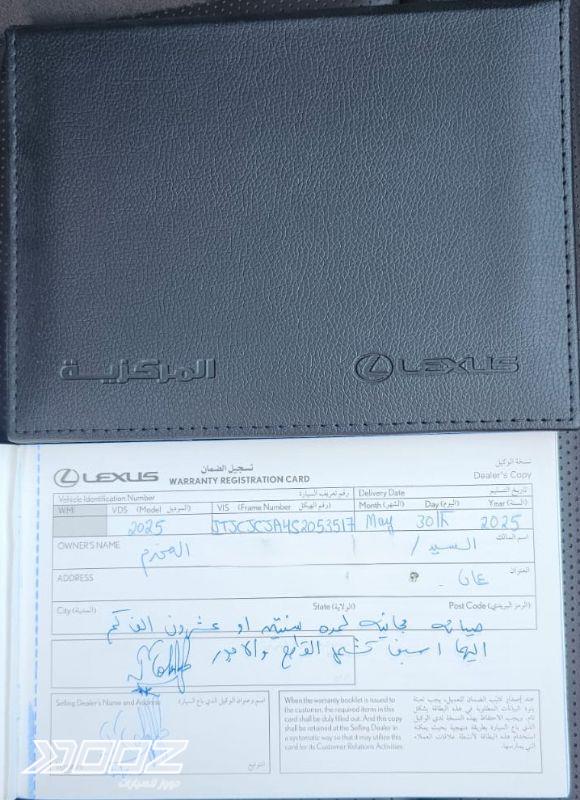 المركزية LEXUS
LEXUS تسجيل الضمان
WARRANTY REGISTRATION CARD
نسخة الوكيل
Dealer's Copy
Vehicle Identification Number رقم تعريف السيارة Delivery Date تاريخ التسليم
WMI VDS (Model الموديل) VIS (Frame Number رقم الهيكل) Month (الشهر) Day (اليوم) Year (السنة)
2025 JTJCJCJA4S2053517 May 30th 2025
OWNER'S NAME السيد / اسم المالك
ADDRESS العنوان
City (المدينة) State (الولاية) Post Code (الرمز البريدي)
صيانه مجانيه لمده سنتين او عشرون الف كم
Selling Dealer's Name and Address اسم وعنوان الوكيل الذي باع السيارة
When the warranty booklet is issued to
the customer, the required items in this
card shall be duly filled out. And this copy
shall be retained at the Selling Dealer in
a systematic way so that it may utilize this
card for its Customer Relations Activities.
عند إصدار كتيب الضمان للعميل، يجب تعبئة
بنود البيانات المطلوبة في هذه البطاقة بشكل
تام. ويجب الاحتفاظ بهذه النسخة لدى الوكيل
الذي باع السيارة بطريقة منهجية بحيث يمكنه
استخدام هذه البطاقة لأنشطة علاقات العملاء
التي يمارسها.
التوقيع
DOOZ
دووز للسيارات